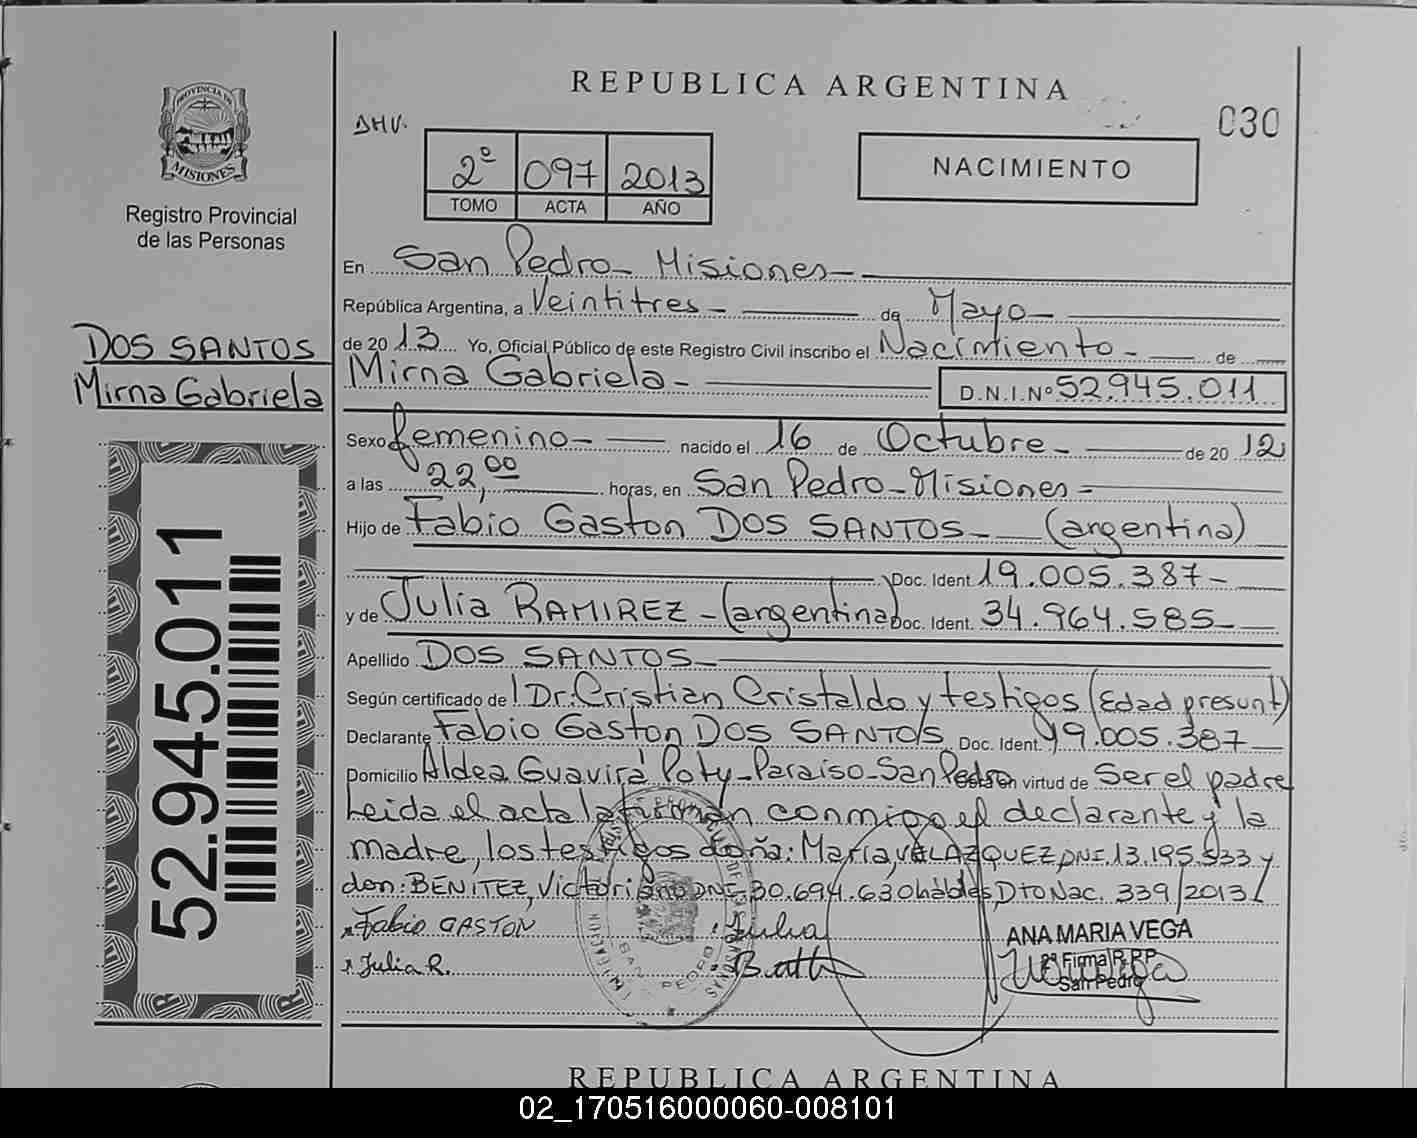 REPUBLICA ARGENTINA
030
DHV.
2º 097 2013
TOMO ACTA AÑO
NACIMIENTO
PROVINCIA DE
MISIONES
Registro Provincial
de las Personas
DOS SANTOS
Mirna Gabriela
52.945.011
En San Pedro - Misiones -
República Argentina, a Veintitres - de Mayo -
de 20 13 Yo, Oficial Público de este Registro Civil inscribo el Nacimiento - de
Mirna Gabriela - D.N.I.Nº 52.945.011
Sexo femenino - nacido el 16 de Octubre - de 20 12
a las 22,00 horas, en San Pedro - Misiones -
Hijo de Fabio Gaston DOS SANTOS - (argentina)
Doc. Ident. 19.005.387 -
y de Julia RAMIREZ - (argentina) Doc. Ident. 34.964.585 -
Apellido DOS SANTOS -
Según certificado de Dr. Cristian Cristaldo y testigos (Edad presunt)
Declarante Fabio Gaston DOS SANTOS Doc. Ident. 19.005.387
Domicilio Aldea Guavirá Poty - Paraiso - San Pedro en virtud de Ser el padre
Leida el acta la firman conmigo el declarante y la
madre, los testigos doña: María, VELAZQUEZ, DNI. 13.195.533 y
don: BENITEZ, Victoriano DNI. 30.694.630 hábiles, Dto Nac. 339/2013/
Fabio GASTON Julia
Julia R.
ANA MARIA VEGA
2ª Firma R.P.P.
San Pedro
REPUBLICA ARGENTINA
02_170516000060-008101